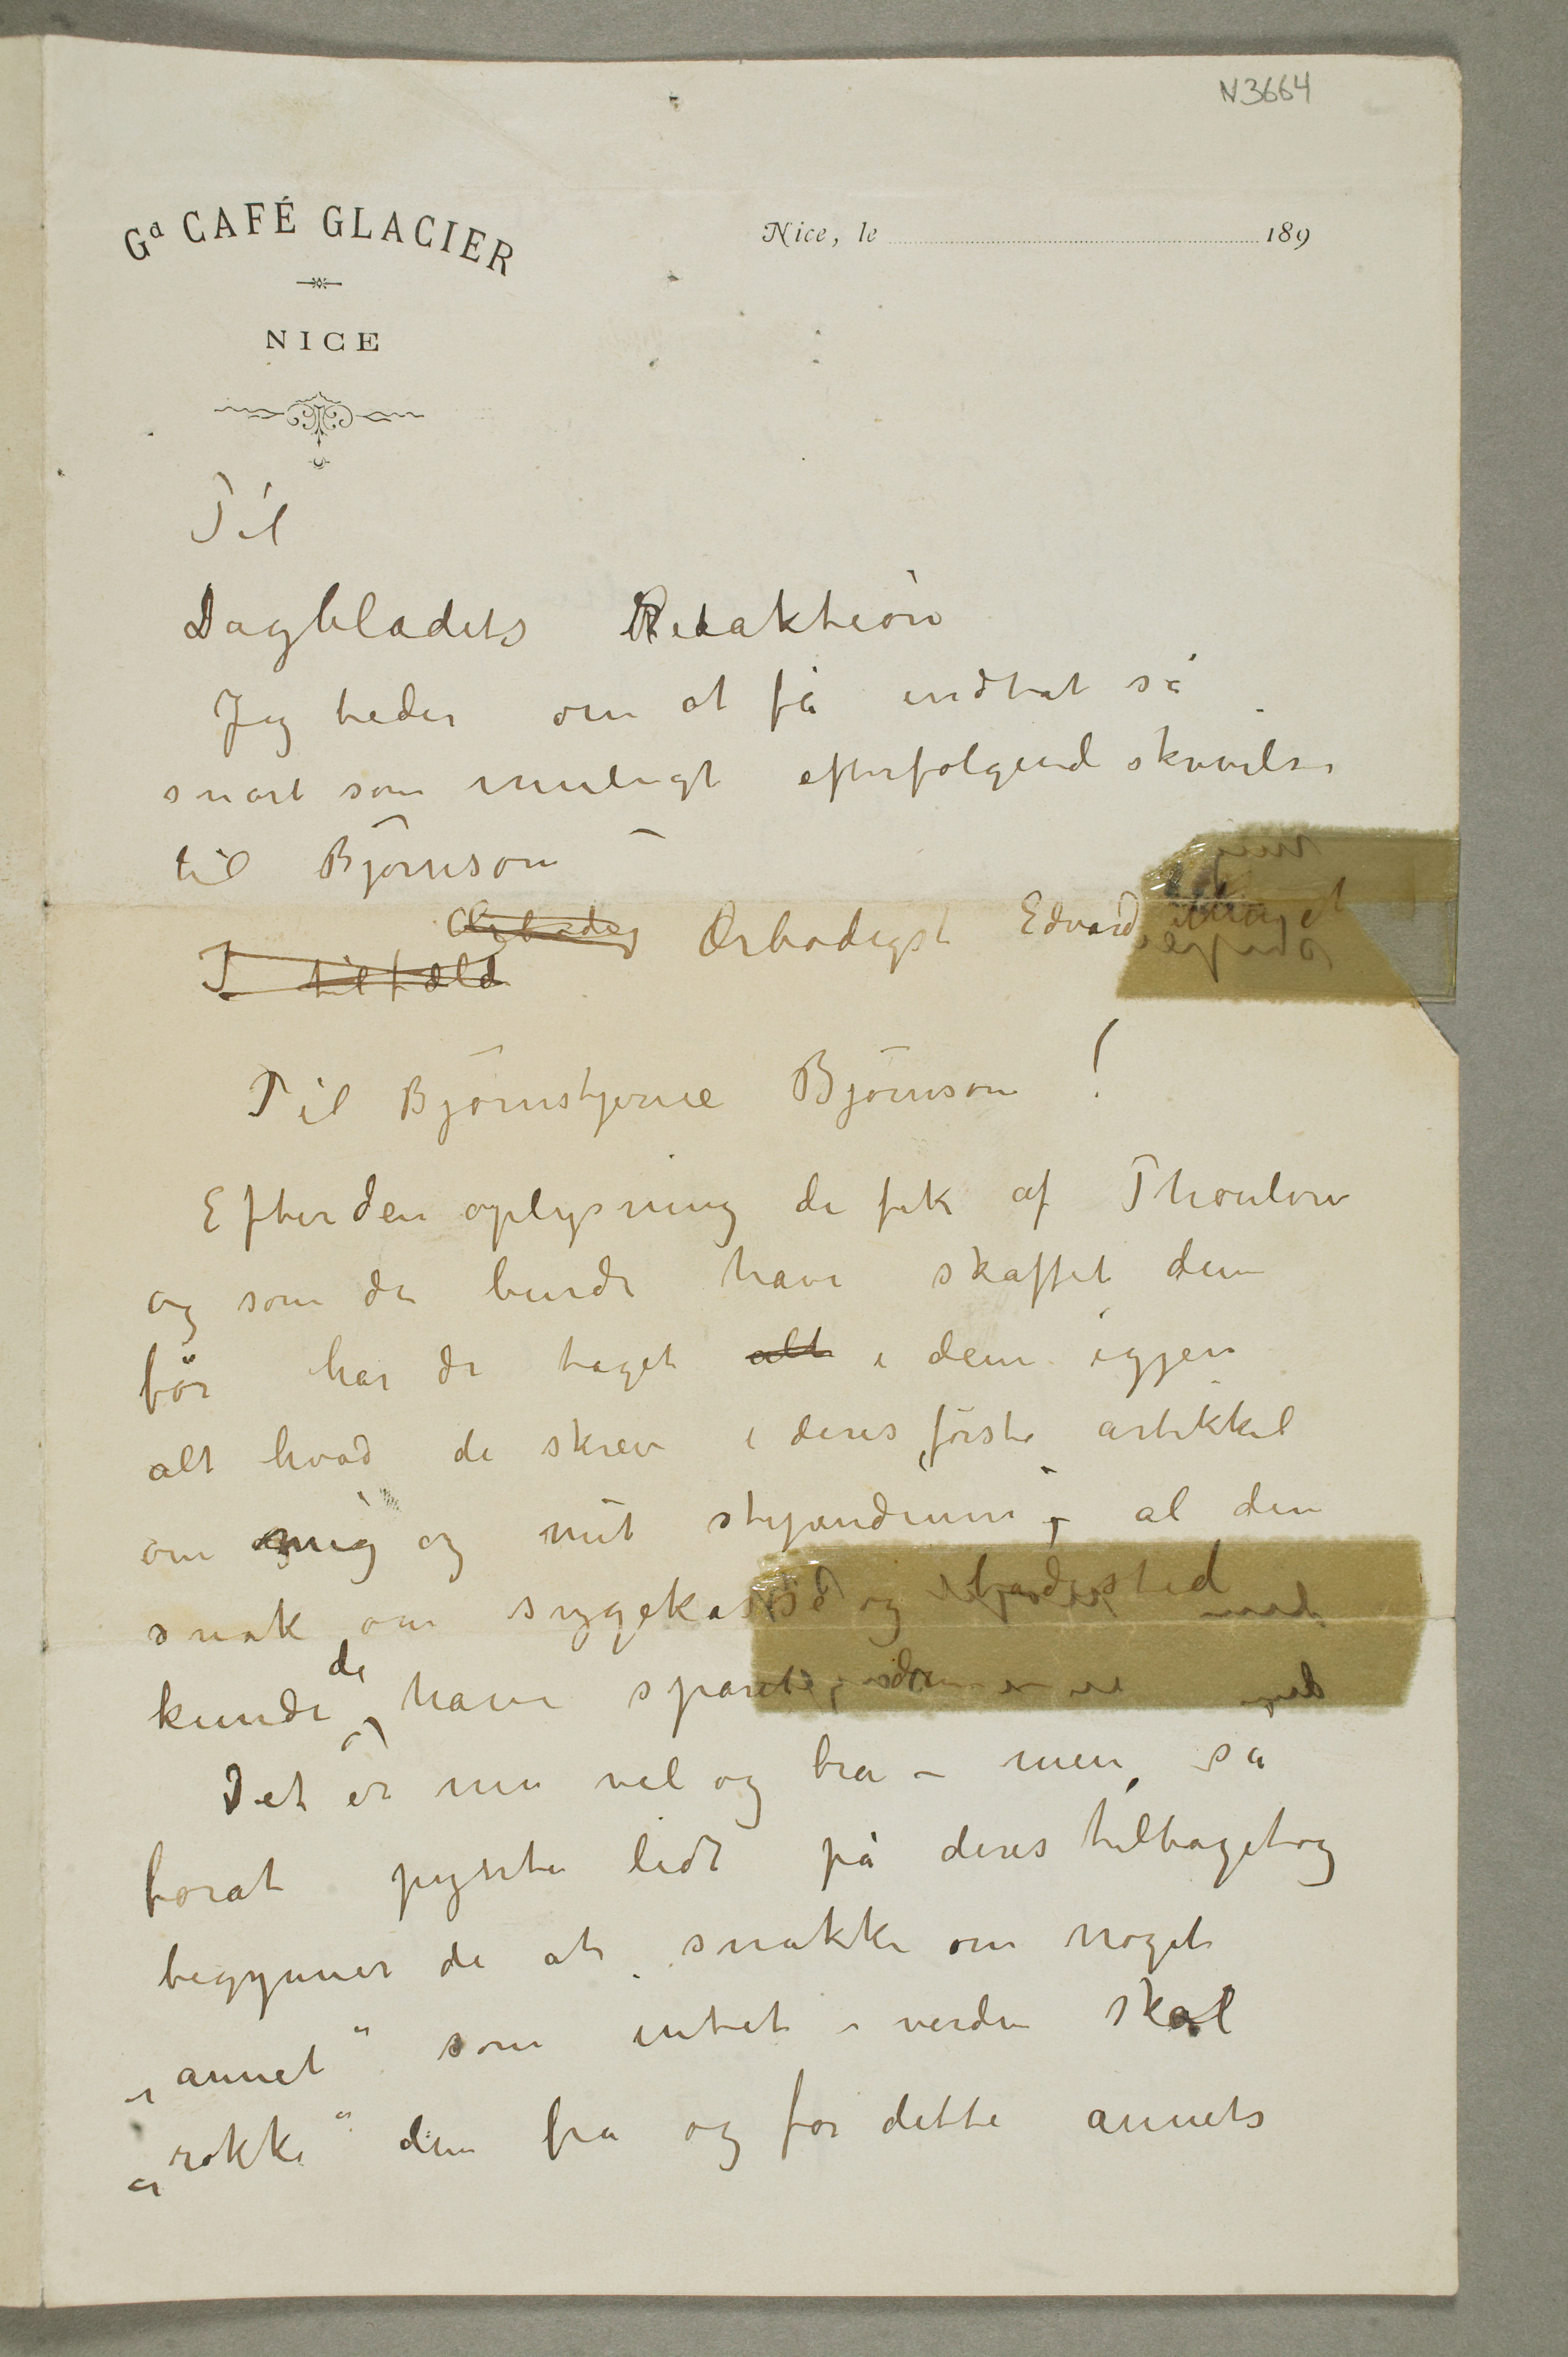 N3664
Gd CAFÉ GLACIER
NICE
Nice, le 189
Til
Dagbladets Redaktion
Jeg beder om at få indtat så
snart som muligt efterfølgend skrivelse
til Bjørnson
Ærbødig Ærbødigst Edvard
I tilfæld
Til Bjørnstjerne Bjørnson !
Efter den oplysning de fik af Thaulow
og som de burde have skaffet dem
før har de taget alt i dem igjen
alt hvad de skrev i deres første artikkel
om mig og mit stipendium – al den
snak om sygekasse og badested
kunde de have sparet,
Det er nu vel og bra – men så
forat pynte lidt på deres tilbagetog
begynner de at snakke om noget
„annet" som intet i verden skal
„rokke" dem fra og for dette annets